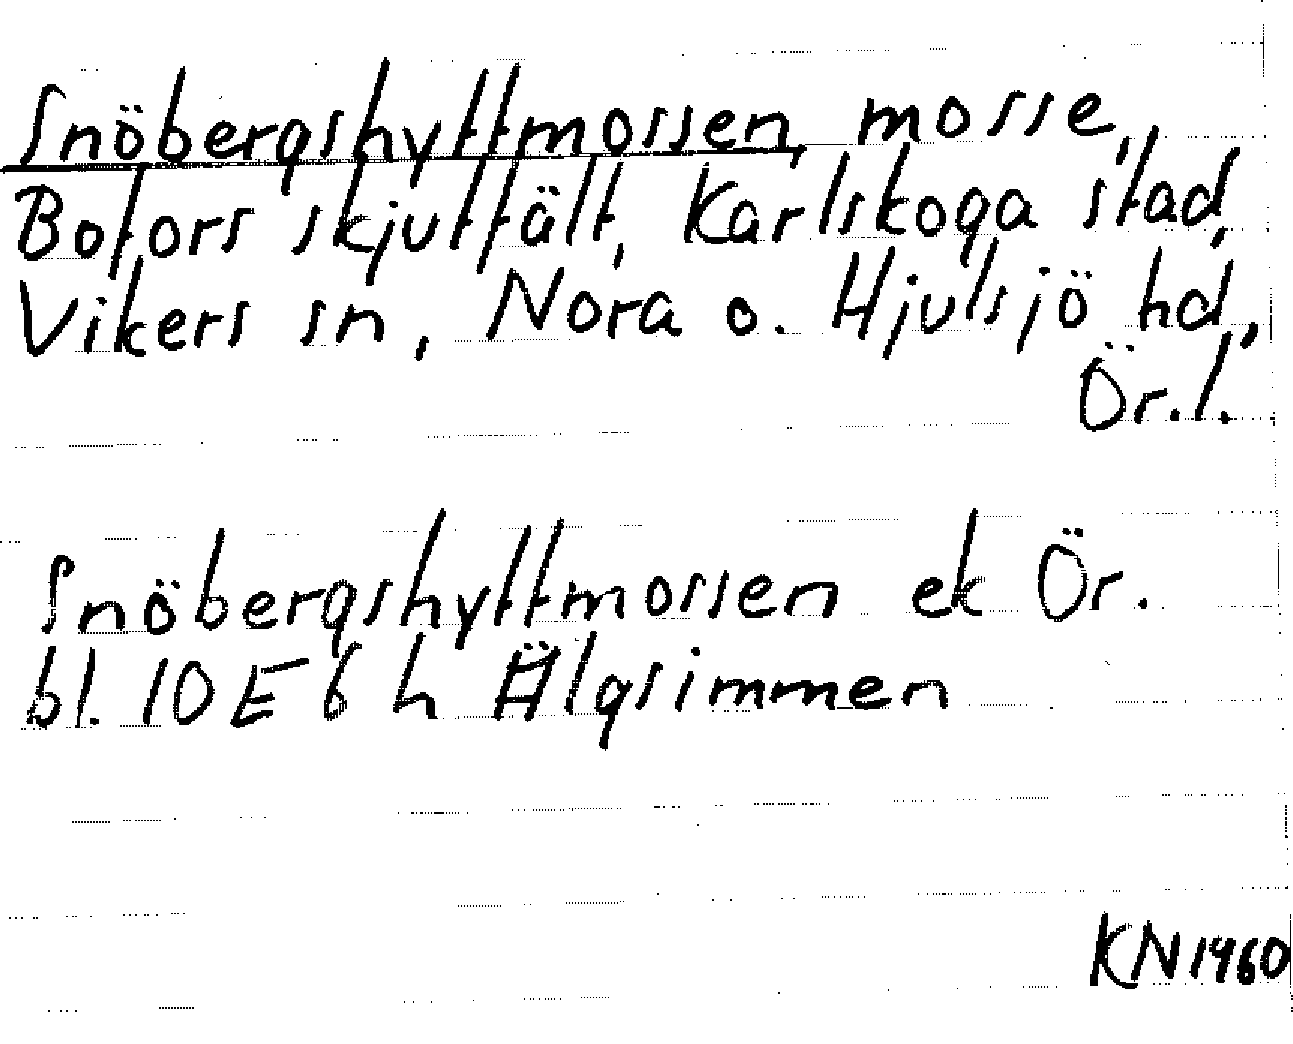 Snöbergshyttmossen, mosse,
Bofors skjutfält, Karlskoga stad,
Vikers sn, Nora o. Hjulsjö hd,
Ör.l.
Snöbergshyttmossen ek Ör.
bl. 10 E 6 h Älgsimmen
KN 1960